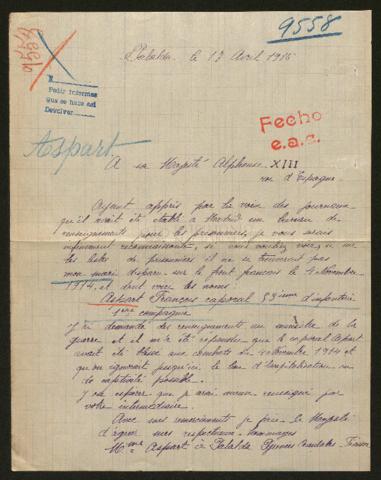 9558
Palalda, le 13 Avril 1915
Pedir informes
que se hace así
Devolver
Fecho
e.a.c.
Aspart
A sa Majesté Alphonse XIII
roi d'Espagne
Ayant appris par la voix des journaux
qu'il avait été établi à Madrid un bureau de
renseignements pour les prisonniers, je vous serais
infiniment reconnaissante, si vous vouliez voir, si sur
les listes de prisonniers il ne se trouverait pas
mon mari disparu sur le front français le 4 Novembre
1914, et dont voici les noms:
Aspart François caporal 53ième d'infanterie
1ère compagnie
J'ai demandé des renseignements au ministre de la
guerre et il m'a été répondu que le caporal Aspart
avait été blessé aux combats du 4 Novembre 1914 et
qu'on ignorait jusqu'ici le lieu d'hospitalisation ou
de captivité possible.
J'ose espérer que j'aurai mieux renseignée par
votre intermédiaire.
Avec mes remerciements je prie le Majesté
d'agréer mes respectueux hommages
Mme Aspart à Palalda Pyrénées Orientales France